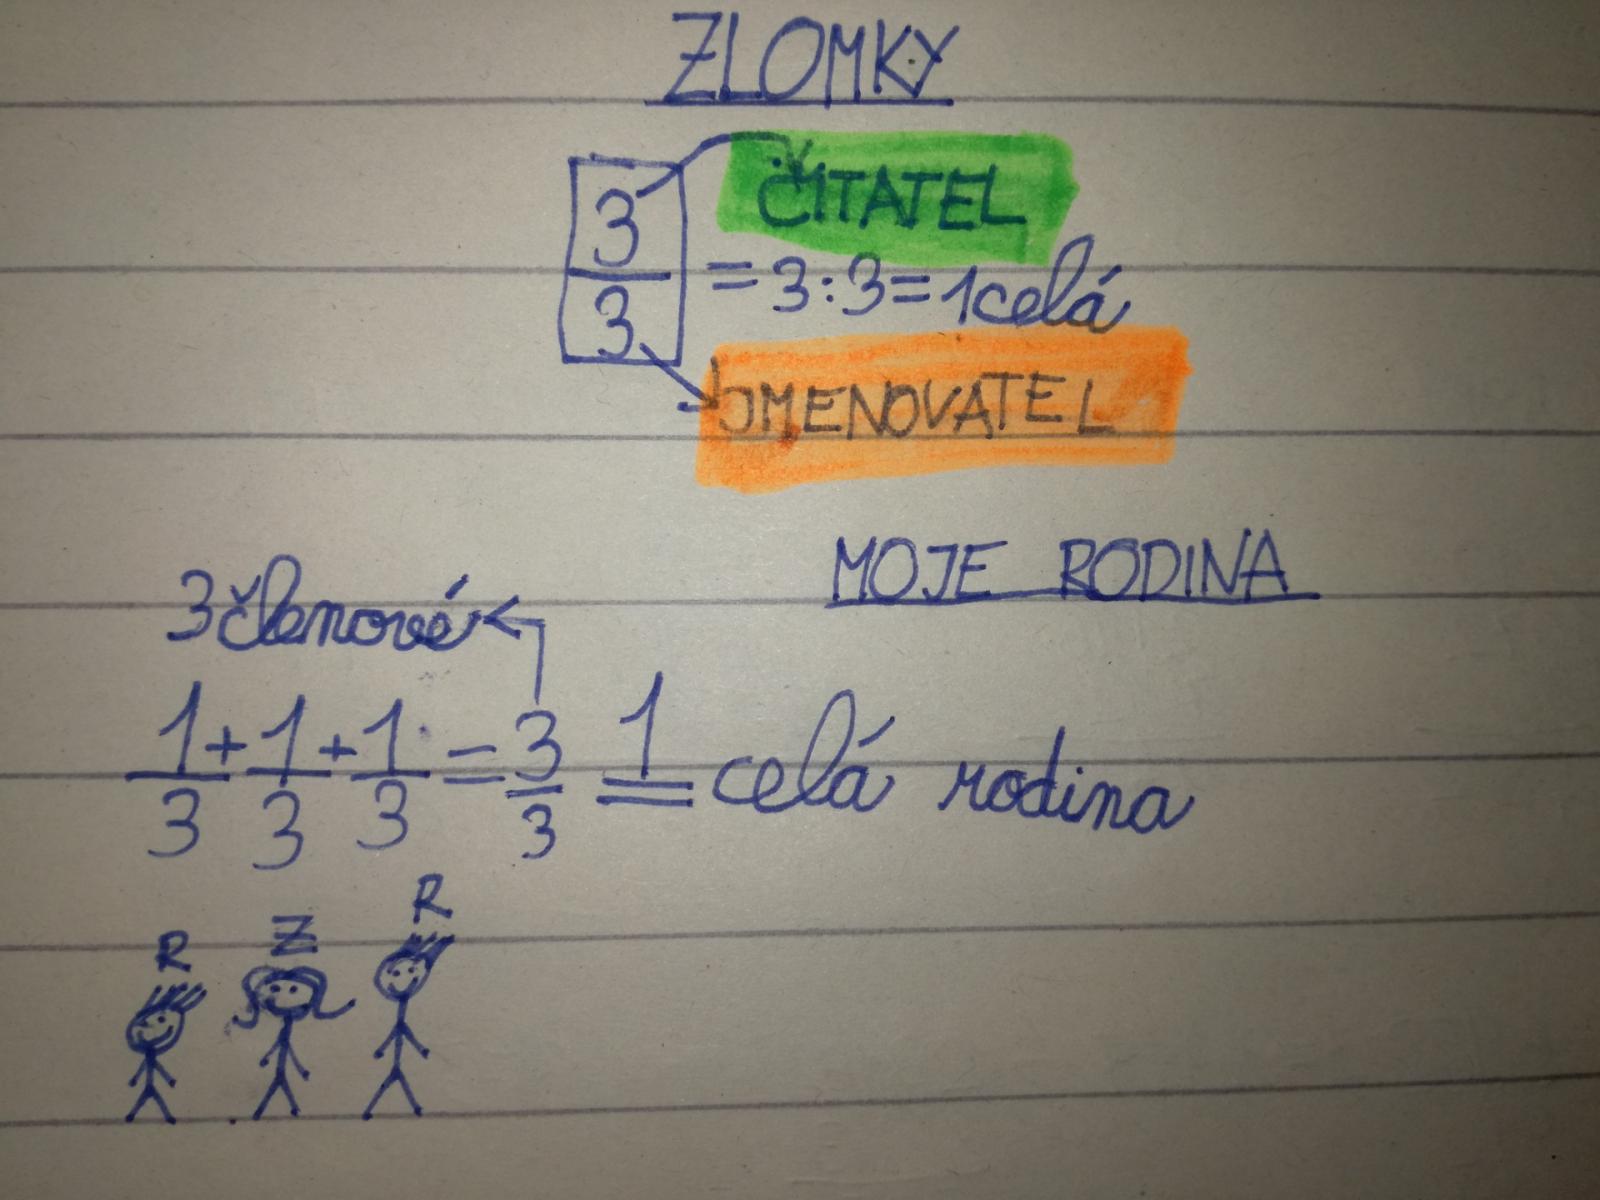 ZLOMKY
ČITATEL
3/3 = 3:3=1celá
JMENOVATEL
MOJE RODINA
3členové
1/3+1/3+1/3=3/3 1 celá rodina
R Z R